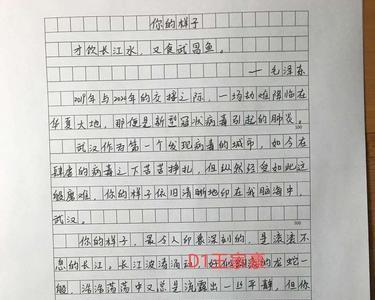 你的样子
才饮长江水，又食武昌鱼。
——毛泽东
2019年与2020年的交接之际，一场劫难降临在
华夏大地，那便是新型冠状病毒引起的肺炎。
100
武汉作为第一个发现病毒的城市，如今在
肆虐的病毒之下苦苦挣扎，但纵然经受如此这
般磨难，你的样子依旧清晰地印在我脑海中，
武汉。
200
你的样子，最令人印象深刻的，是滚滚不
息的长江。长江波涛涌动，好似翻滚的龙蛇一
般，浩浩荡荡中又总是流露出一丝平静，但你
D1王